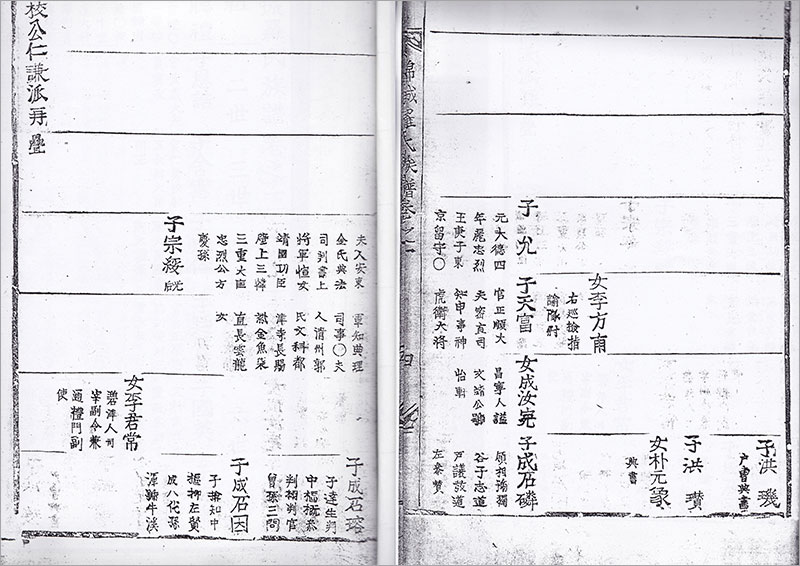 子洪璣
戶曹典書
子洪瓚
女朴元
典書
女李方甫
右巡檢指
諭隊尉
子允
元大德四
年麗忠烈
王庚子東
京留守〇
子天富
官正順大
夫密直司
知申事神
虎衛大將
女成汝完
昌寧人諡
文靖公號
怡軒
子成石璘
領相
谷子志道
戶議該道
左參贊
錦城羅氏族譜卷之一
夫人安東
金氏典法
司判書上
將軍恒女
靖國功臣
壁上三韓
三重大匡
忠烈公方
慶孫
軍知典理
司事〇夫
人清州郭
氏文科都
津寺長賜
緋金魚袋
直長雲龍
女
子宗綬
女李君常
碧津人司
宰副令兼
通禮門副
使
子成石瑢
子達生判
中樞
判樞判官
曾孫三問
子成石因
子揜知中
樞抑左贊
成八代孫
渾號牛溪
校公仁謙派再疊